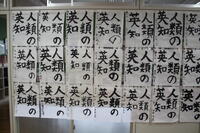 人類の
英知
人類の
英知
人類の
英知
人類の
英知
人類の
英知
人類の
英知
人類の
英知
人類の
英知
人類の
英知
人類の
英知
人類の
英知
人類の
英知
人類の
英知
人類の
英知
人類の
英知
人類の
英知
人類の
英知
人類の
英知
人類の
英知
人類の
英知
人類の
英知